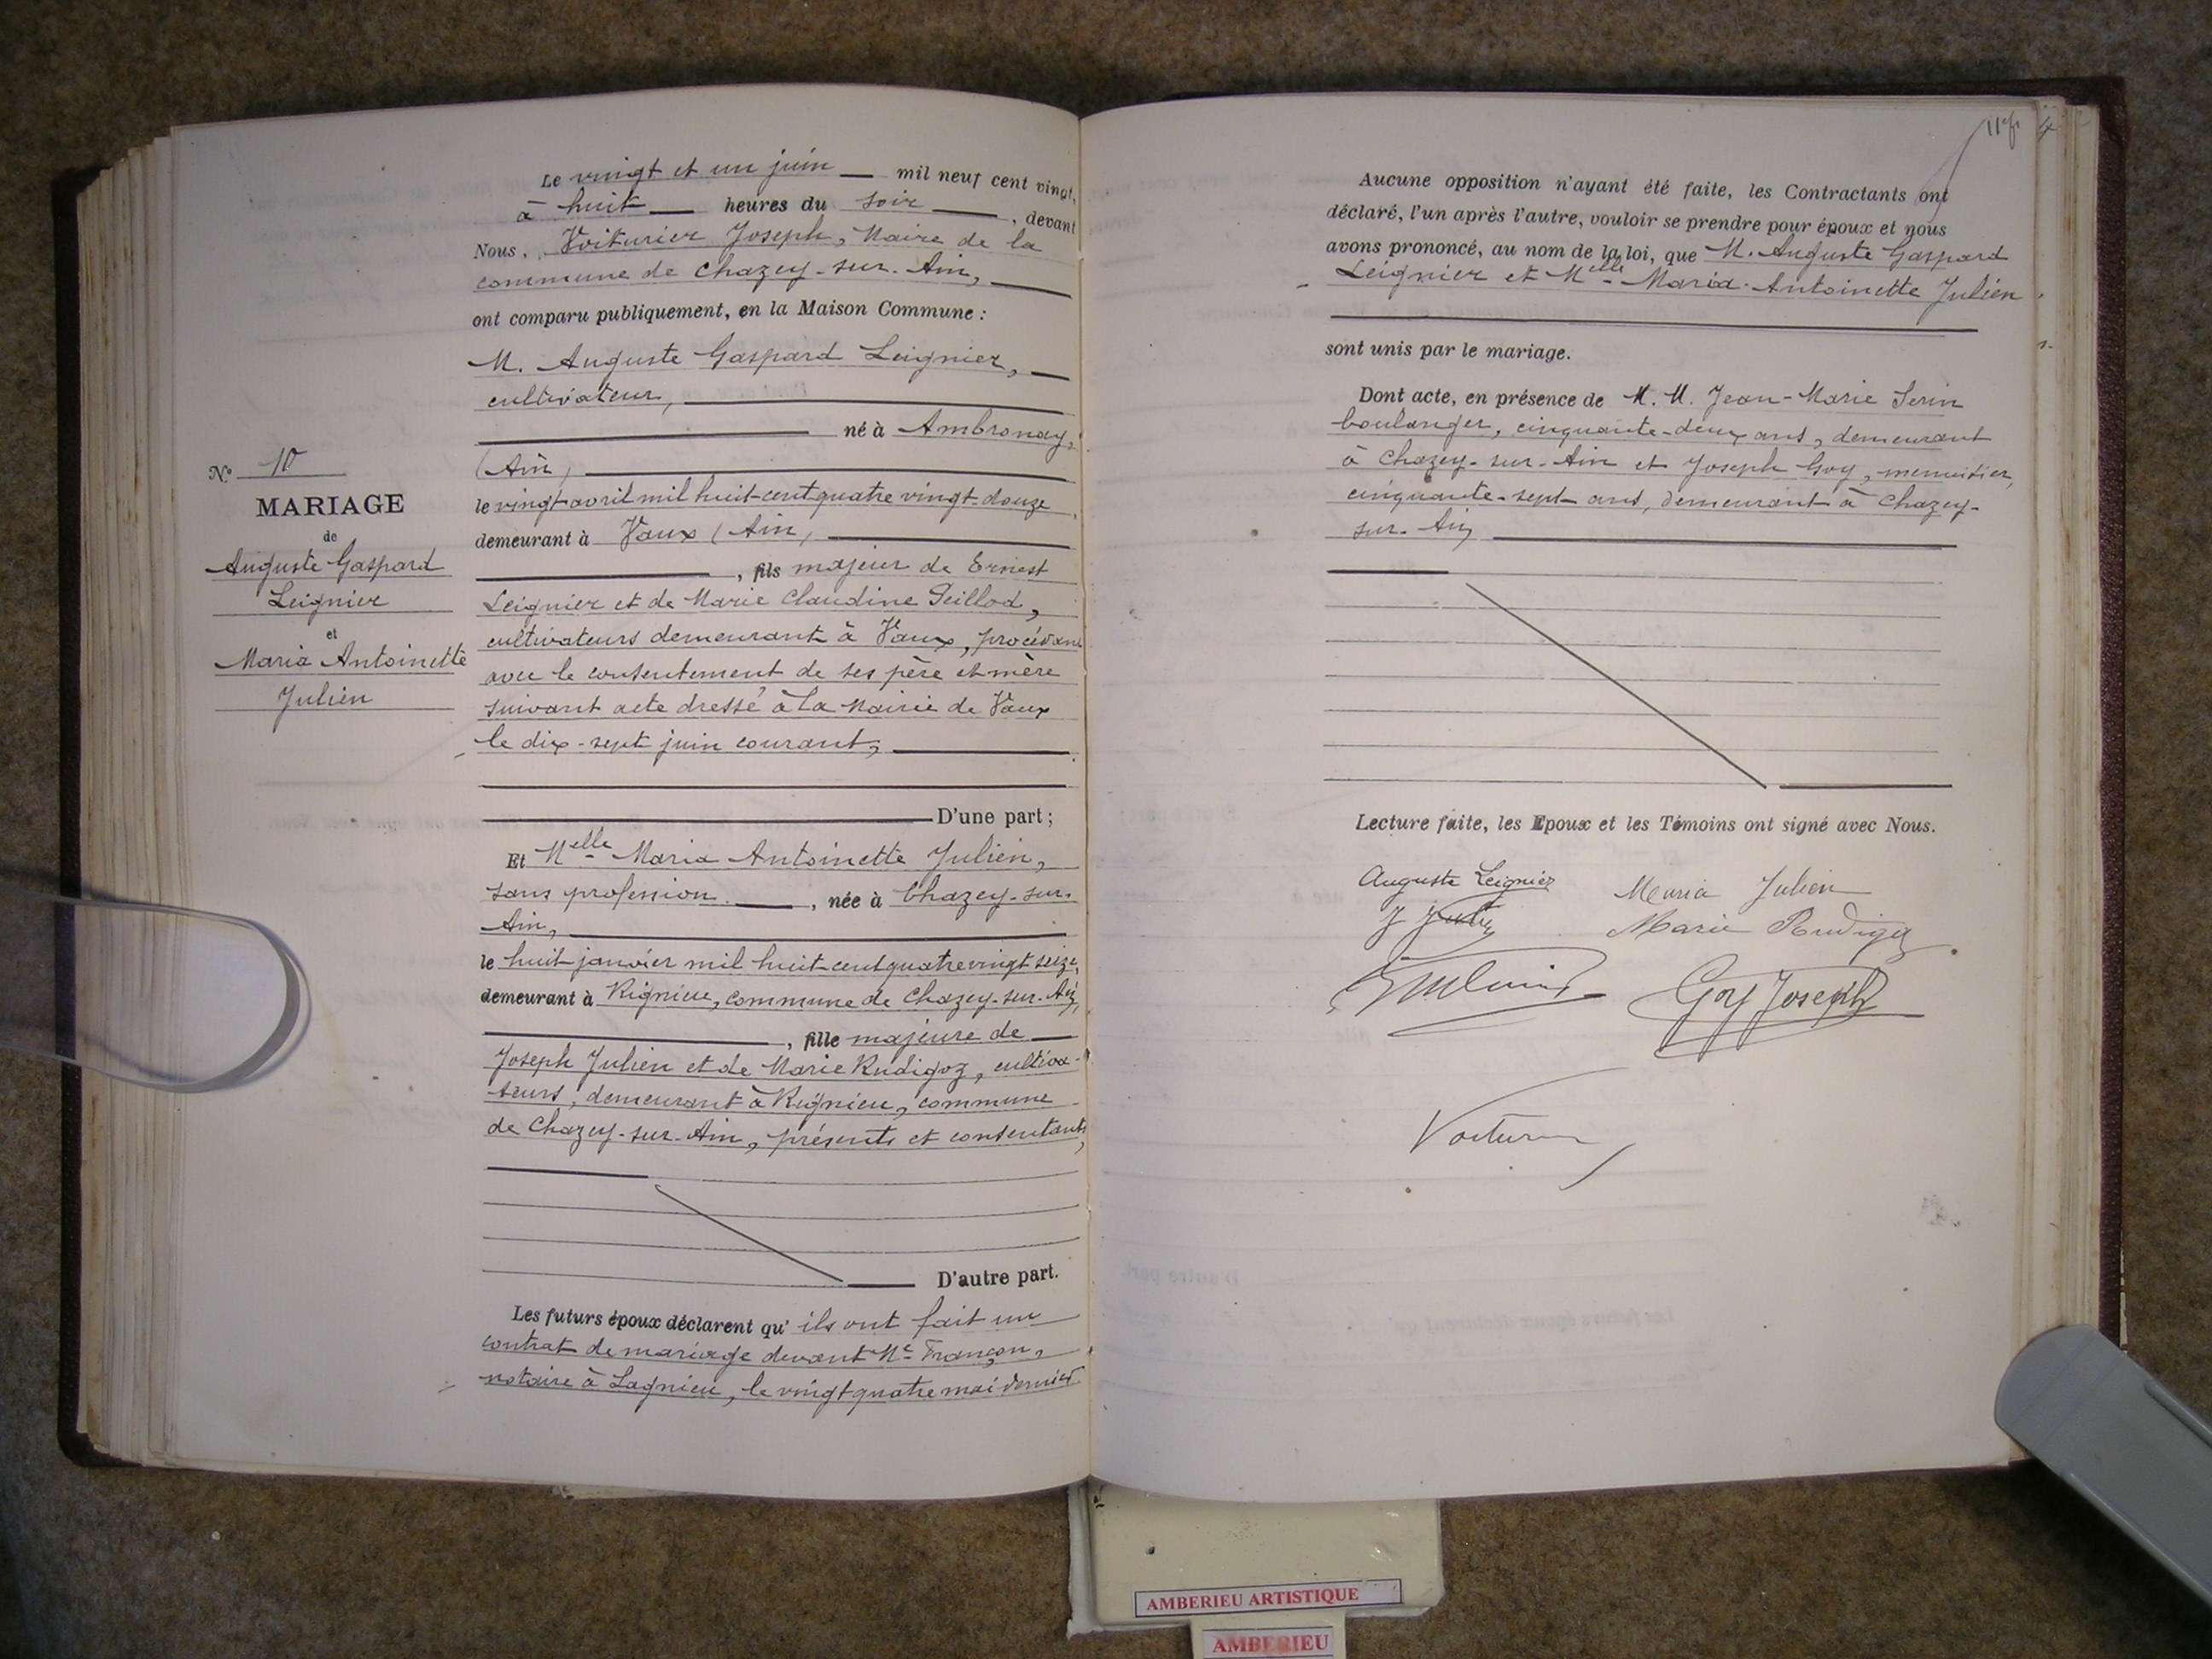 Le vingt et un juin mil neuf cent vingt,
à huit heures du soir, devant
Nous, Voiturier Joseph, Maire de la
commune de Chazey-sur-Ain,
ont comparu publiquement, en la Maison Commune :
M. Auguste Gaspard Leignier,
cultivateur,
né à Ambronay,
(Ain)
le vingt avril mil huit cent quatre vingt-douze
demeurant à Vaux (Ain)
, fils majeur de Ernest
Leignier et de Marie Claudine Peillod,
cultivateurs demeurant à Vaux, procédant
avec le consentement de ses père et mère
suivant acte dressé à la Mairie de Vaux
le dix-sept juin courant,
D'une part ;
N° 10
MARIAGE
de
Auguste Gaspard
Leignier
et
Maria Antoinette
Julien
Et Melle Maria Antoinette Julien,
sans profession, née à Chazey-sur-
Ain,
le huit janvier mil huit cent quatre vingt seize,
demeurant à Rignieu, commune de Chazey-sur-Ain,
, fille majeure de
Joseph Julien et de Marie Rudigoz, cultiva-
teurs, demeurant à Rignieu, commune
de Chazey-sur-Ain, présents et consentants,
D'autre part.
Les futurs époux déclarent qu'ils ont fait un
contrat de mariage devant Me Françon,
notaire à Lagnieu, le vingt quatre mai dernier
Aucune opposition n'ayant été faite, les Contractants ont
déclaré, l'un après l'autre, vouloir se prendre pour époux et nous
avons prononcé, au nom de la loi, que M. Auguste Gaspard
Leignier et Melle Maria-Antoinette Julien
sont unis par le mariage.
Dont acte, en présence de M. M. Jean-Marie Serin
boulanger, cinquante-deux ans, demeurant
à Chazey-sur-Ain et Joseph Goy, menuisier,
cinquante-sept ans, demeurant à Chazey-
sur-Ain
Lecture faite, les Epoux et les Témoins ont signé avec Nous.
Auguste Leignier Maria Julien
Marie Rudigoz
Goy Joseph
AMBERIEU ARTISTIQUE
AMBERIEU